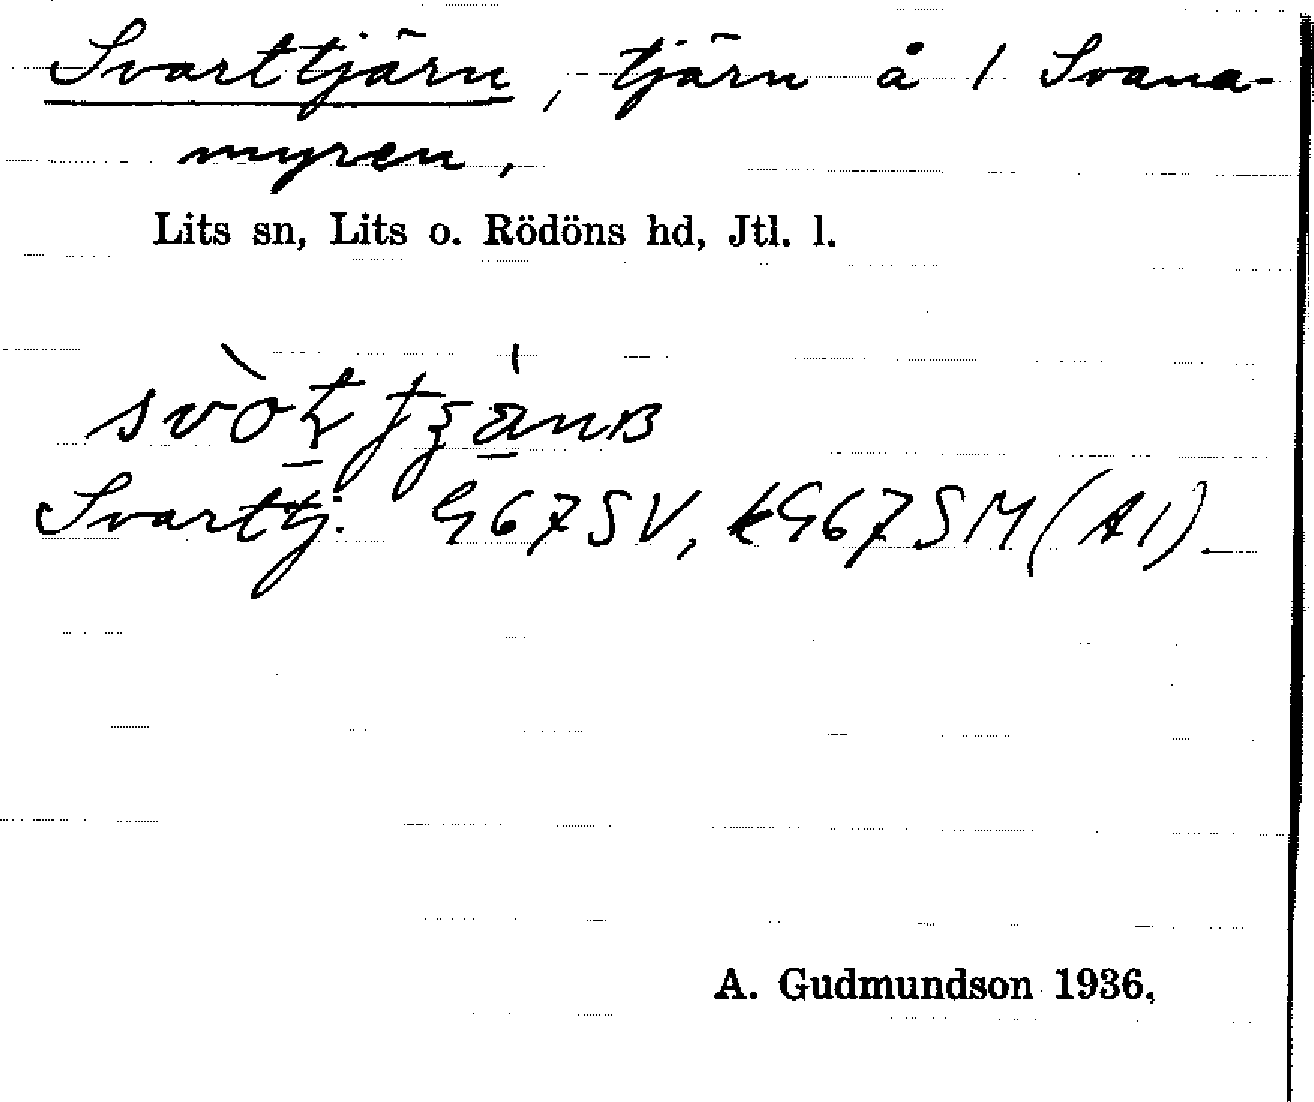 Svarttjärn, tjärn å 1 Svana-
myren,
Lits sn, Lits o. Rödöns hd, Jtl. l.
Svarttj. G67SV, kG67SM (A1)
A. Gudmundson 1936.